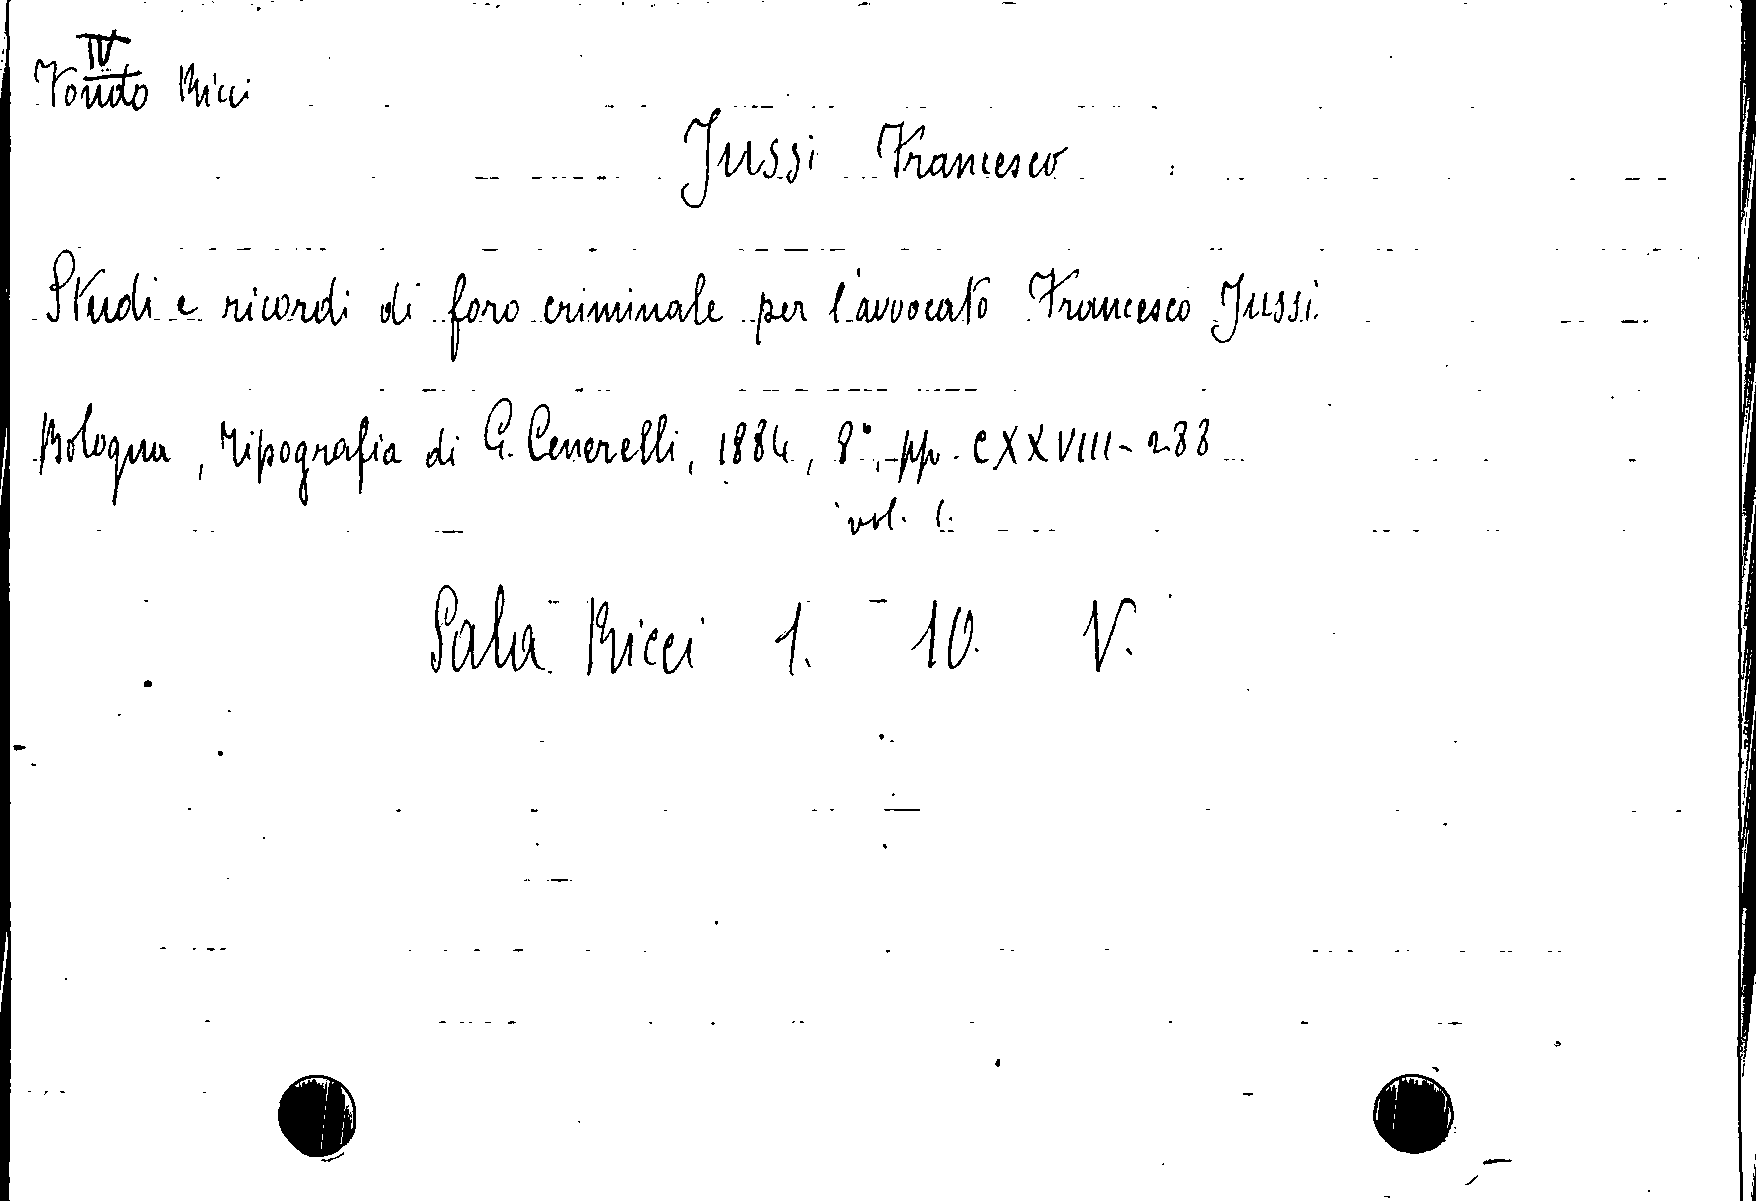 IV
Fondo Ricci
Jussi Francesco
Studi e ricordi di foro criminale per l'avvocato Francesco Jussi.
Bologna, Tipografia di G. Cenerelli, 1884, 8°, pp. CXXVIII-288
vol. 1.
Sala Ricci 1. 10. V.